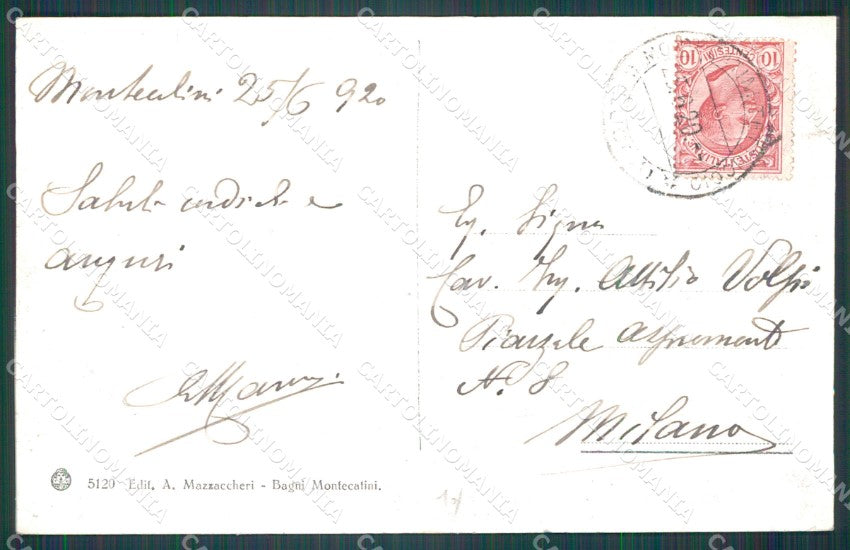 Montecatini 25/6 920
Saluti cordiali e
auguri
5120 - Edit. A. Mazzaccheri - Bagni Montecatini.
10 CENTESIMI 10
POSTE ITALIANE
Eg. Signor
Cav. Ing. Attilio Volpi
Piazzale Aspromonte
N. 8
Milano
CARTOLINOMANIA